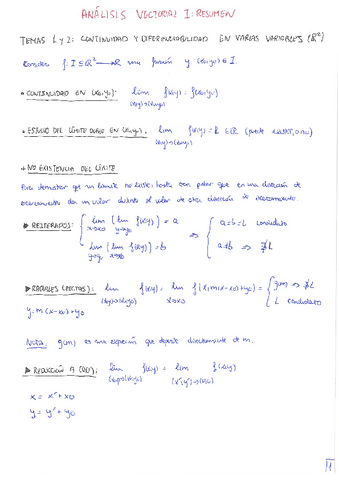 ANÁLISIS VECTORIAL I: RESUMEN
TEMAS 1 y 2: CONTINUIDAD Y DIFERENCIABILIDAD EN VARIAS VARIABLES (ℝ²)
Considera f: I ⊆ ℝ² → ℝ una función y (x₀,y₀) ∈ I.
• CONTINUIDAD EN (x₀,y₀): lim f(x,y) = f(x₀,y₀)
(x,y)→(x₀,y₀)
• ESTUDIO DEL LÍMITE DOBLE EN (x₀,y₀): lim f(x,y) = L ∈ ℝ (puede existir, o no)
(x,y)→(x₀,y₀)
• NO EXISTENCIA DEL LÍMITE
Para demostrar que un límite no existe, basta con probar que en una dirección de
acercamiento da un valor distinto al valor de otra dirección de acercamiento.
▶ REITERADOS: { lim [ lim f(x,y) ] = a
x→x₀ y→y₀
lim [ lim f(x,y) ] = b
y→y₀ x→x₀
⇒ { a=b=L candidato
a≠b ⇒ ∄L
▶ RADIALES (RECTAS): lim f(x,y) = lim f(x, m(x-x₀)+y₀) = { g(m) ⇒ ∄L
(x,y)→(x₀,y₀) x→x₀ L candidato
y=m(x-x₀)+y₀
Nota: g(m) es una expresión que depende directamente de m.
▶ REDUCCIÓN A (0,0): lim f(x,y) = lim f(x,y)
(x,y)→(x₀,y₀) (x',y')→(0,0)
x = x' + x₀
y = y' + y₀
1